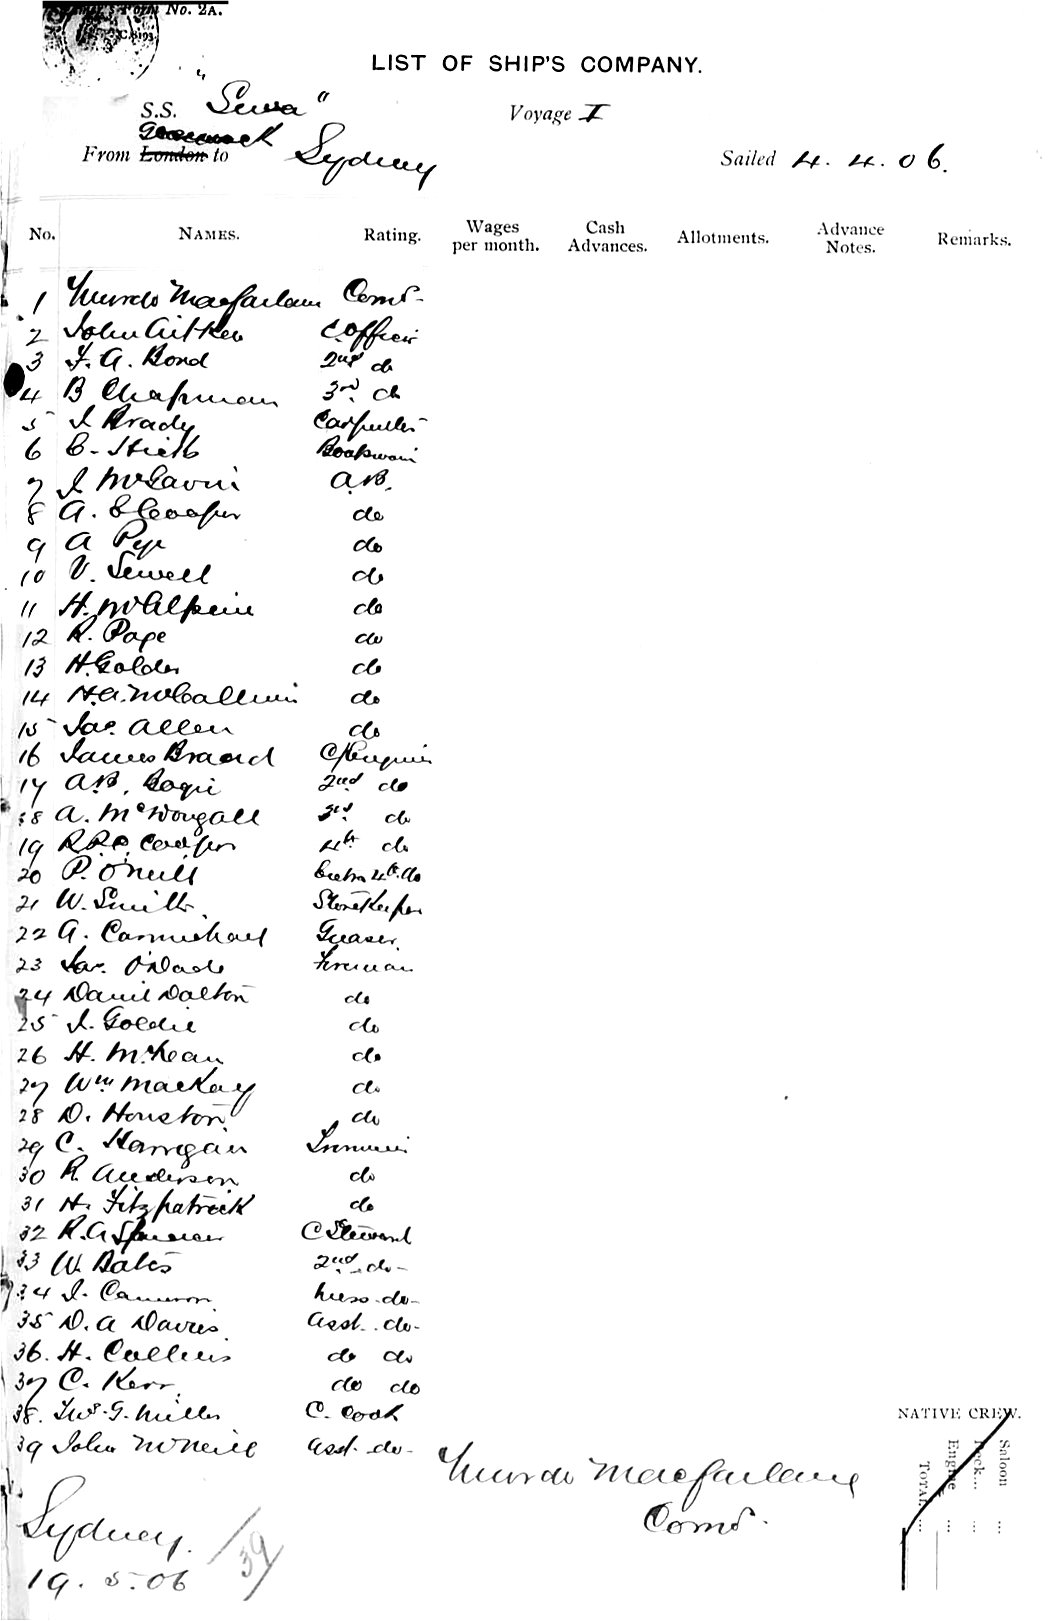 No. 2A.
LIST OF SHIP'S COMPANY.
S.S. "Sewa"
Voyage I
Greenock
From London to Sydney
Sailed 4.4.06.
No. NAMES. Rating. Wages per month. Cash Advances. Allotments. Advance Notes. Remarks.
1 Murdo Macfarlane Comdr
2 John Aitken C. Officer
3 F. A. Bond 2nd do
4 B Chapman 3rd do
5 J Brady Carpenter
6 C. Hicks Boatswain
7 J McGavin A.B.
8 A. E Cooper do
9 A Pye do
10 V. Sewell do
11 H. McAlpine do
12 R. Page do
13 H. Golder do
14 H.A. McCallum do
15 Jas. Allen do
16 James Braand C/Engineer
17 A.B. Bogie 2nd do
18 A. McDougall 3rd do
19 R.R.C. Cooper 4th do
20 P. O'Neill Extra 4th do
21 W. Smith Storekeeper
22 A. Carmichael Greaser
23 Jas. O'Dade Fireman
24 Daniel Dalton do
25 J. Goldie do
26 H. McKean do
27 Wm Mackay do
28 D. Houston do
29 C. Harrigan Trimmer
30 R. Anderson do
31 H. Fitzpatrick do
32 R.A Spencer C Steward
33 W. Bates 2nd do-
34 J. Cameron Mess do-
35 D. A Davies Asst. do-
36. H. Collins do do
37 C. Kerr do do
38. Thos. G. Miller C. Cook
39 John McNeill Asst do-
NATIVE CREW.
Saloon ...
Deck... ...
Engine ...
TOTAL ...
Murdo Macfarlane
Comdr.
Sydney.
19.5.06
39